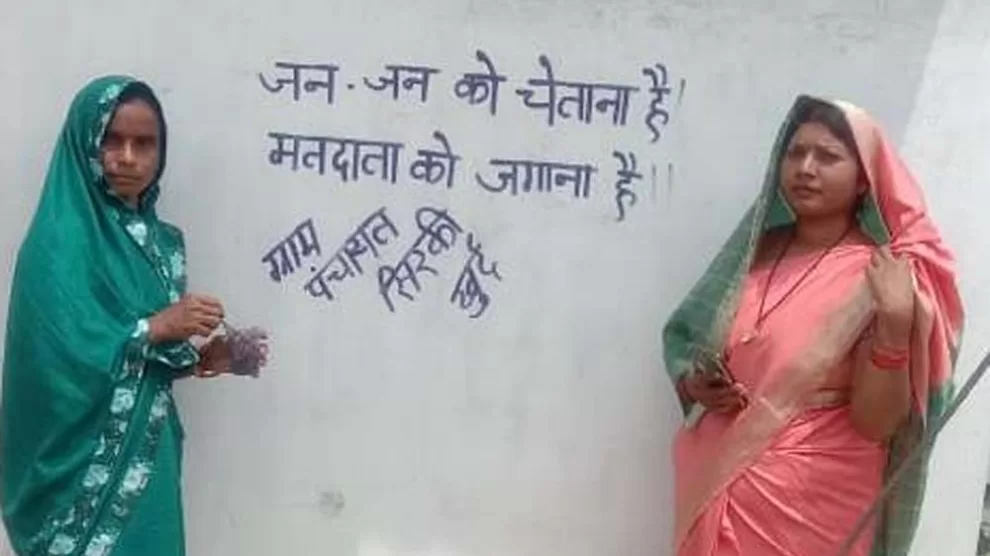 जन-जन को चेताना है।
मतदाता को जगाना है॥
ग्राम पंचायत सिरकी खुर्द